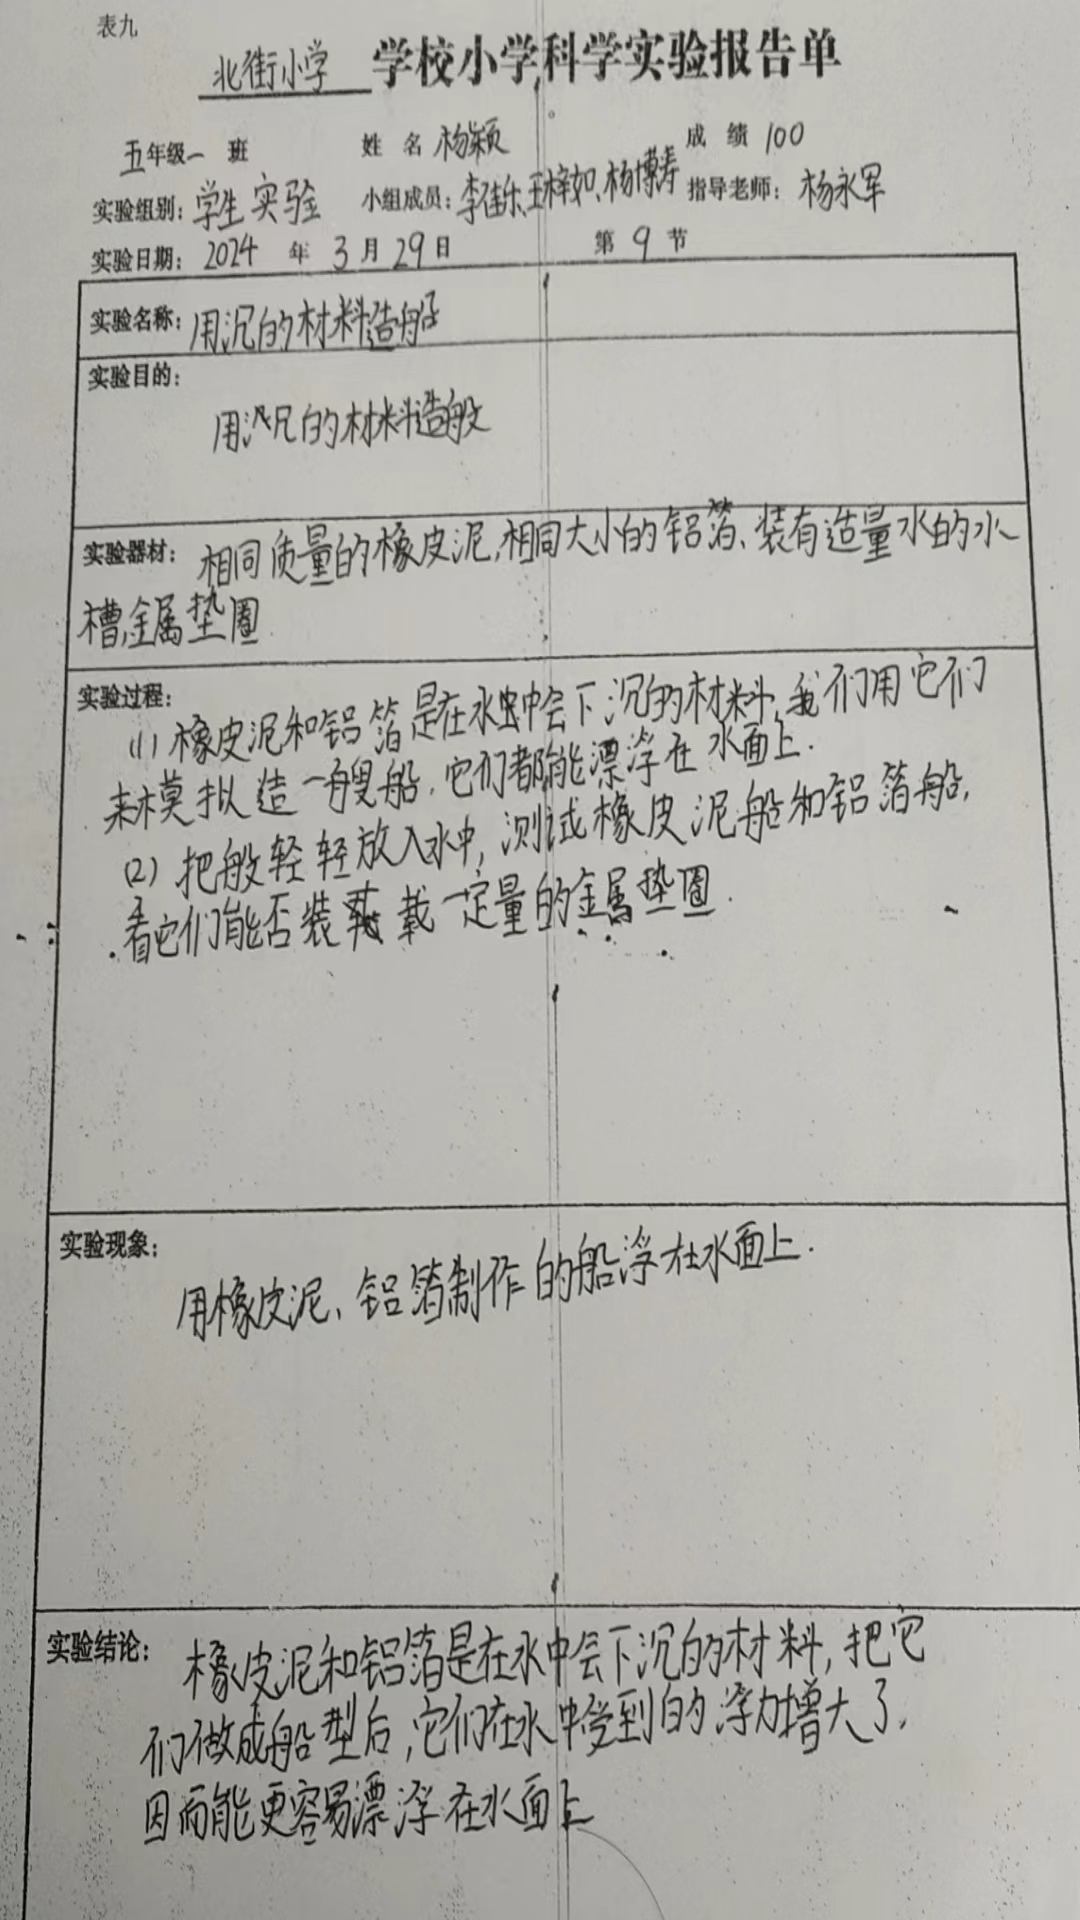 表九
北街小学 学校小学科学实验报告单
五年级一 班 姓 名 杨颖 成 绩 100
实验组别: 学生实验 小组成员: 李佳乐、王梓如、杨博涛 指导老师: 杨永军
实验日期: 2024 年 3 月 29 日 第 9 节
实验名称: 用沉的材料造船
实验目的:
用沉的材料造船
实验器材: 相同质量的橡皮泥、相同大小的铝箔、装有适量水的水
槽、金属垫圈
实验过程:
(1) 橡皮泥和铝箔是在水中会下沉的材料,我们用它们
来模拟造一艘船,它们都能漂浮在水面上.
(2) 把船轻轻放入水中,测试橡皮泥船和铝箔船,
看它们能否装载一定量的金属垫圈.
实验现象:
用橡皮泥、铝箔制作的船浮在水面上.
实验结论: 橡皮泥和铝箔是在水中会下沉的材料,把它
们做成船型后,它们在水中受到的浮力增大了,
因而能更容易漂浮在水面上